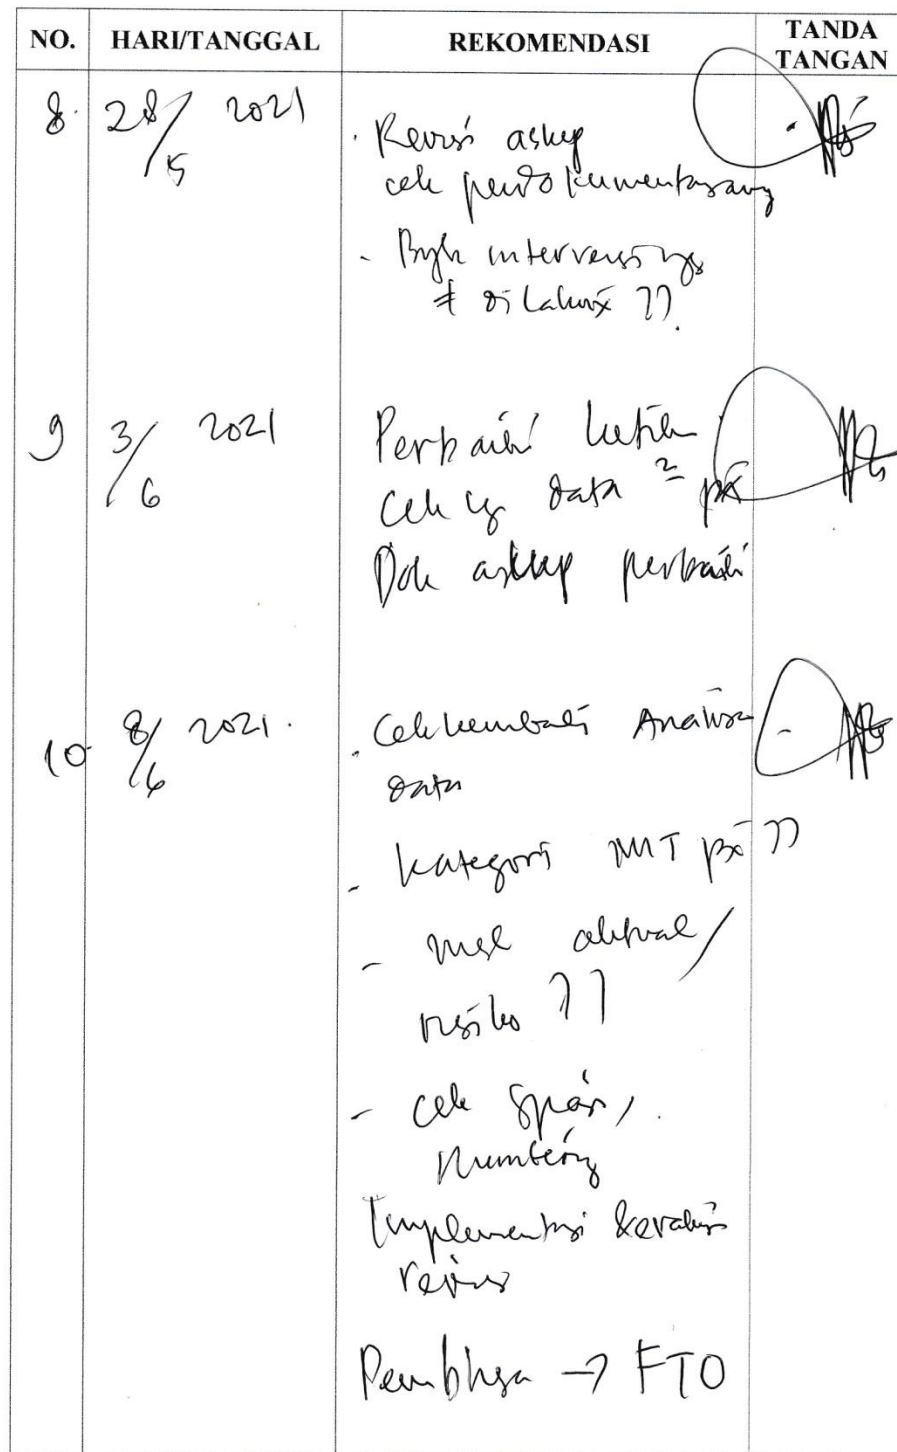 NO. HARI/TANGGAL REKOMENDASI TANDA TANGAN
8. 28/5 2021
. Revisi askep
cek pendokumentasiany
- Byk intervensi yg
≠ dilakux ??
9 3/6 2021
Perbaiki
Cek lg data ² px
Dok askep perbaiki
10. 8/6 2021.
. Cek kembali Analisa
data
- Kategori IMT px ??
- msl aktual/
risiko ??
- cek spasi,
numbering
Implementasi & evaluasi
revisi
Pembhsa → FTO